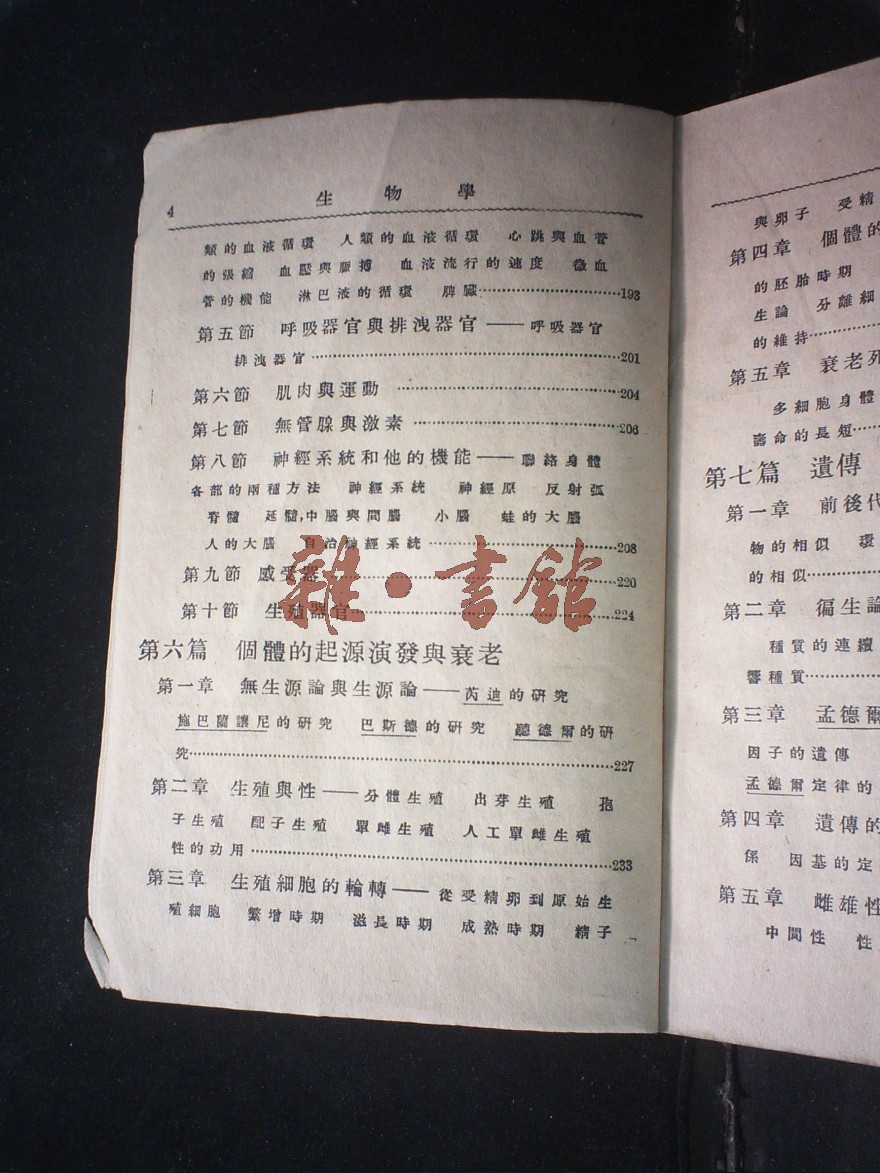 4 生物學
類的血液循環 人類的血液循環 心跳與血管
的張縮 血壓與脈搏 血液流行的速度 微血
管的機能 淋巴液的循環 脾臟……193
第五節 呼吸器官與排洩器官——呼吸器官
排洩器官……201
第六節 肌肉與運動……204
第七節 無管腺與激素……206
第八節 神經系統和他的機能——聯絡身體
各部的兩種方法 神經系統 神經原 反射弧
脊髓 延髓,中腦與間腦 小腦 蛙的大腦
人的大腦 自治神經系統……208
第九節 感受器……220
第十節 生殖器官……224
第六篇 個體的起源演發與衰老
第一章 無生源論與生源論——芮迪的研究
施巴蘭讓尼的研究 巴斯德的研究 聽德爾的研
究……227
第二章 生殖與性——分體生殖 出芽生殖 孢
子生殖 配子生殖 單雌生殖 人工單雌生殖
性的功用……233
第三章 生殖細胞的輪轉——從受精卵到原始生
殖細胞 繁增時期 滋長時期 成熟時期 精子
與卵子 受精
第四章 個體的
的胚胎時期
生論 分離細
的維持……
第五章 衰老死
多細胞身體
壽命的長短……
第七篇 遺傳
第一章 前後代
物的相似 環
的相似……
第二章 徧生論
種質的連續
響種質……
第三章 孟德爾
因子的遺傳
孟德爾定律的
第四章 遺傳的
係 因基的定
第五章 雌雄性
中間性 性
雜·書館